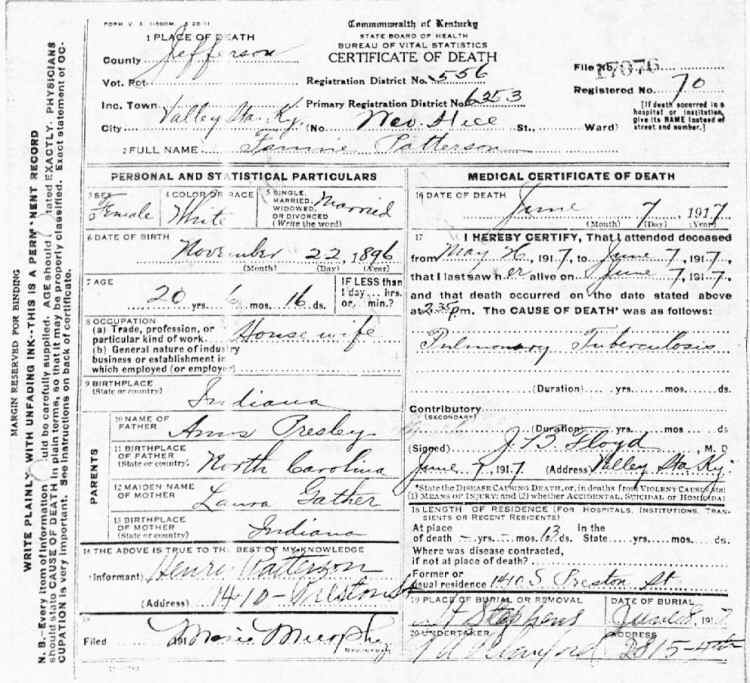 FORM V. S.
Commonwealth of Kentucky
STATE BOARD OF HEALTH
BUREAU OF VITAL STATISTICS
CERTIFICATE OF DEATH
1 PLACE OF DEATH
County Jefferson
Vot. Pct.
Inc. Town Valley Sta. Ky.
City
Registration District No. 556
Primary Registration District No. 6253
(No. St., Ward)
File No. 17076
Registered No. 70
[If death occurred in a
hospital or institution,
give its NAME instead of
street and number.]
2 FULL NAME Patterson
PERSONAL AND STATISTICAL PARTICULARS
3 SEX
Female
4 COLOR OR RACE
White
5 SINGLE,
MARRIED,
WIDOWED,
OR DIVORCED
(Write the word)
Married
6 DATE OF BIRTH
November 22, 1896
(Month) (Day) (Year)
7 AGE
20 yrs. 6 mos. 16 ds.
IF LESS than
1 day... hrs.
or... min.?
8 OCCUPATION
(a) Trade, profession, or
particular kind of work.
House wife
(b) General nature of industry
business or establishment in
which employed (or employer)
9 BIRTHPLACE
(State or country)
Indiana
PARENTS
10 NAME OF
FATHER
Presley
11 BIRTHPLACE
OF FATHER
(State or country)
North Carolina
12 MAIDEN NAME
OF MOTHER
Laura Gather
13 BIRTHPLACE
OF MOTHER
(State or country)
Indiana
14 THE ABOVE IS TRUE TO THE BEST OF MY KNOWLEDGE
(Informant) Henri Patterson
(Address) 1410 - Preston St
15
Filed 191 Murphy
REGISTRAR
MEDICAL CERTIFICATE OF DEATH
16 DATE OF DEATH
June 7, 1917
(Month) (Day) (Year)
17 I HEREBY CERTIFY, That I attended deceased
from May 26, 1917, to June 7, 1917,
that I last saw her alive on June 7, 1917,
and that death occurred on the date stated above
at 2:35 pm. The CAUSE OF DEATH* was as follows:
Pulmonary Tuberculosis
(Duration) yrs. mos. ds.
Contributory
(SECONDARY)
(Duration) yrs. mos. ds.
(Signed) J B Floyd, M. D
June 7 1917 (Address) Valley Sta Ky.
*State the DISEASE CAUSING DEATH, or, in deaths from VIOLENT CAUSES state
(1) MEANS OF INJURY; and (2) whether ACCIDENTAL, SUICIDAL OR HOMICIDAL
18 LENGTH OF RESIDENCE (FOR HOSPITALS, INSTITUTIONS, TRANSIENTS OR RECENT RESIDENTS)
At place
of death yrs. mos. ds.
In the
State yrs. mos. ds.
Where was disease contracted,
if not at place of death?
Former or
usual residence 1410 S Preston St
19 PLACE OF BURIAL OR REMOVAL
St Stephens
DATE OF BURIAL
June 8, 1917
20 UNDERTAKER
Crawford
ADDRESS
2815-4th
MARGIN RESERVED FOR BINDING
WRITE PLAINLY WITH UNFADING INK--THIS IS A PERMANENT RECORD
N. B.-Every item of information should be carefully supplied. AGE should stated EXACTLY. PHYSICIANS
should state CAUSE OF DEATH in plain terms, so that it may be properly classified. Exact statement of OC-
CUPATION is very important. See instructions on back of certificate.